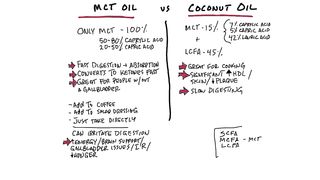 MCT OIL vs COCONUT OIL
ONLY MCT - 100%
50-80% CAPRYLIC ACID
20-50% CAPRIC ACID
FAST DIGESTION + ABSORPTION
CONVERTS TO KETONES FAST
GREAT FOR PEOPLE W/NT
A GALLBLADDER
- ADD TO COFFEE
- ADD TO SALAD DRESSING
- JUST TAKE DIRECTLY
CAN IRRITATE DIGESTION
↑ENERGY/BRAIN SUPPORT/
GALLBLADDER ISSUES/I'R/
↓HUNGER
MCT-15%
7% CAPRYLIC ACID
5% CAPRIC ACID
42% LAURIC ACID
+
LCFA-45%
GREAT FOR COOKING
SIGNIFICANT ↑HDL/
SKIN/↓PLAQUE
SLOW DIGESTING
SCFA
MCFA - MCT
LCFA